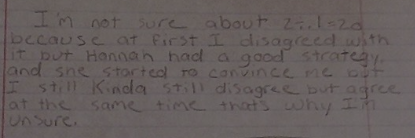 I'm not sure about 2÷.1=20
because at first I disagreed with
it but Hannah had a good strategy,
and she started to convince me but
I still Kinda still disagree but agree
at the same time that's why I'm
unsure.